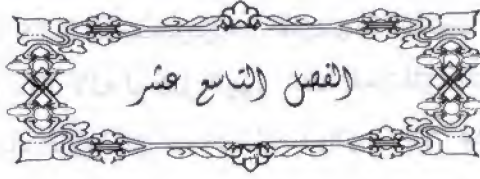 الفصل التاسع عشر